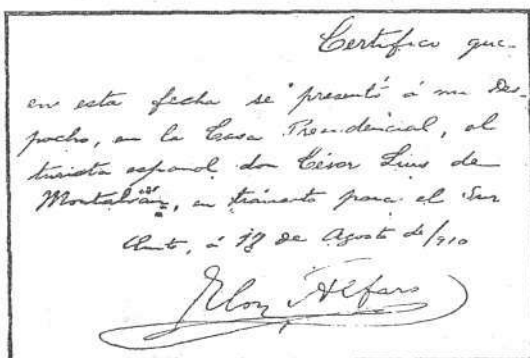 Certifico que
en esta fecha se presentó á mi Des-
pacho, en la Casa Presidencial, el
turista español don César Luis de
Montalván, en tránsito para el Sur
Quito, á 17 de Agosto de 1910
Eloy Alfaro